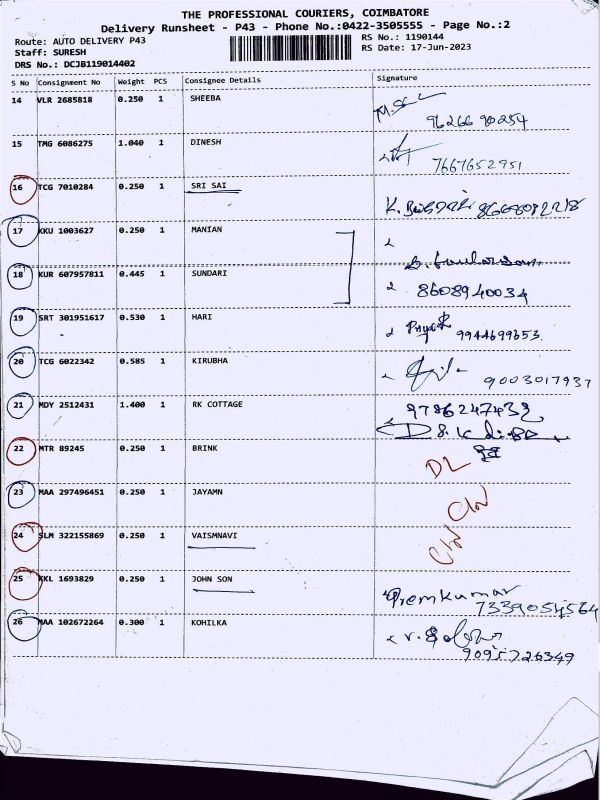 THE PROFESSIONAL COURIERS, COIMBATORE
Delivery Runsheet - P43 - Phone No.:0422-3505555 - Page No.:2
Route: AUTO DELIVERY P43
Staff: SURESH
DRS No.: DCJB119014402
RS No.: 1190144
RS Date: 17-Jun-2023
S No Consignment No Weight PCS Consignee Details Signature
14 VLR 2685818 0.250 1 SHEEBA
9626690254
15 TMG 6086275 1.040 1 DINESH
7667652951
16 TCG 7010284 0.250 1 SRI SAI
8668092218
17 KKU 1003627 0.250 1 MANIAN
18 KUR 607957811 0.445 1 SUNDARI
8608940034
19 SRT 301951617 0.530 1 HARI
9944699653
20 TCG 6022342 0.585 1 KIRUBHA
9003017937
21 MDY 2512431 1.400 1 RK COTTAGE
9786247432
22 MTR 89245 0.250 1 BRINK
DL
23 MAA 297496451 0.250 1 JAYAMN
24 SLM 322155869 0.250 1 VAISMNAVI
25 KKL 1693829 0.250 1 JOHN SON
Premkumar
7339054564
26 MAA 102672264 0.300 1 KOHILKA
9095726349